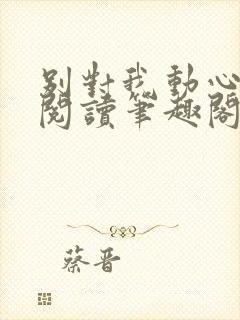 別對我動心
閱讀筆趣閣
蔡晋